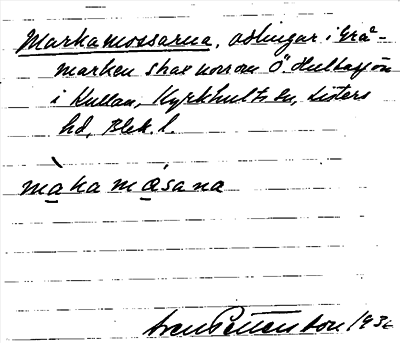 Markamossarna, odlingar i Grå-
marken strax norrom Ö. Hultasjön
i Kullan, Kyrkhults sn, Listers
hd, Blek. l.
màka mása na
Sven Pettersson 193